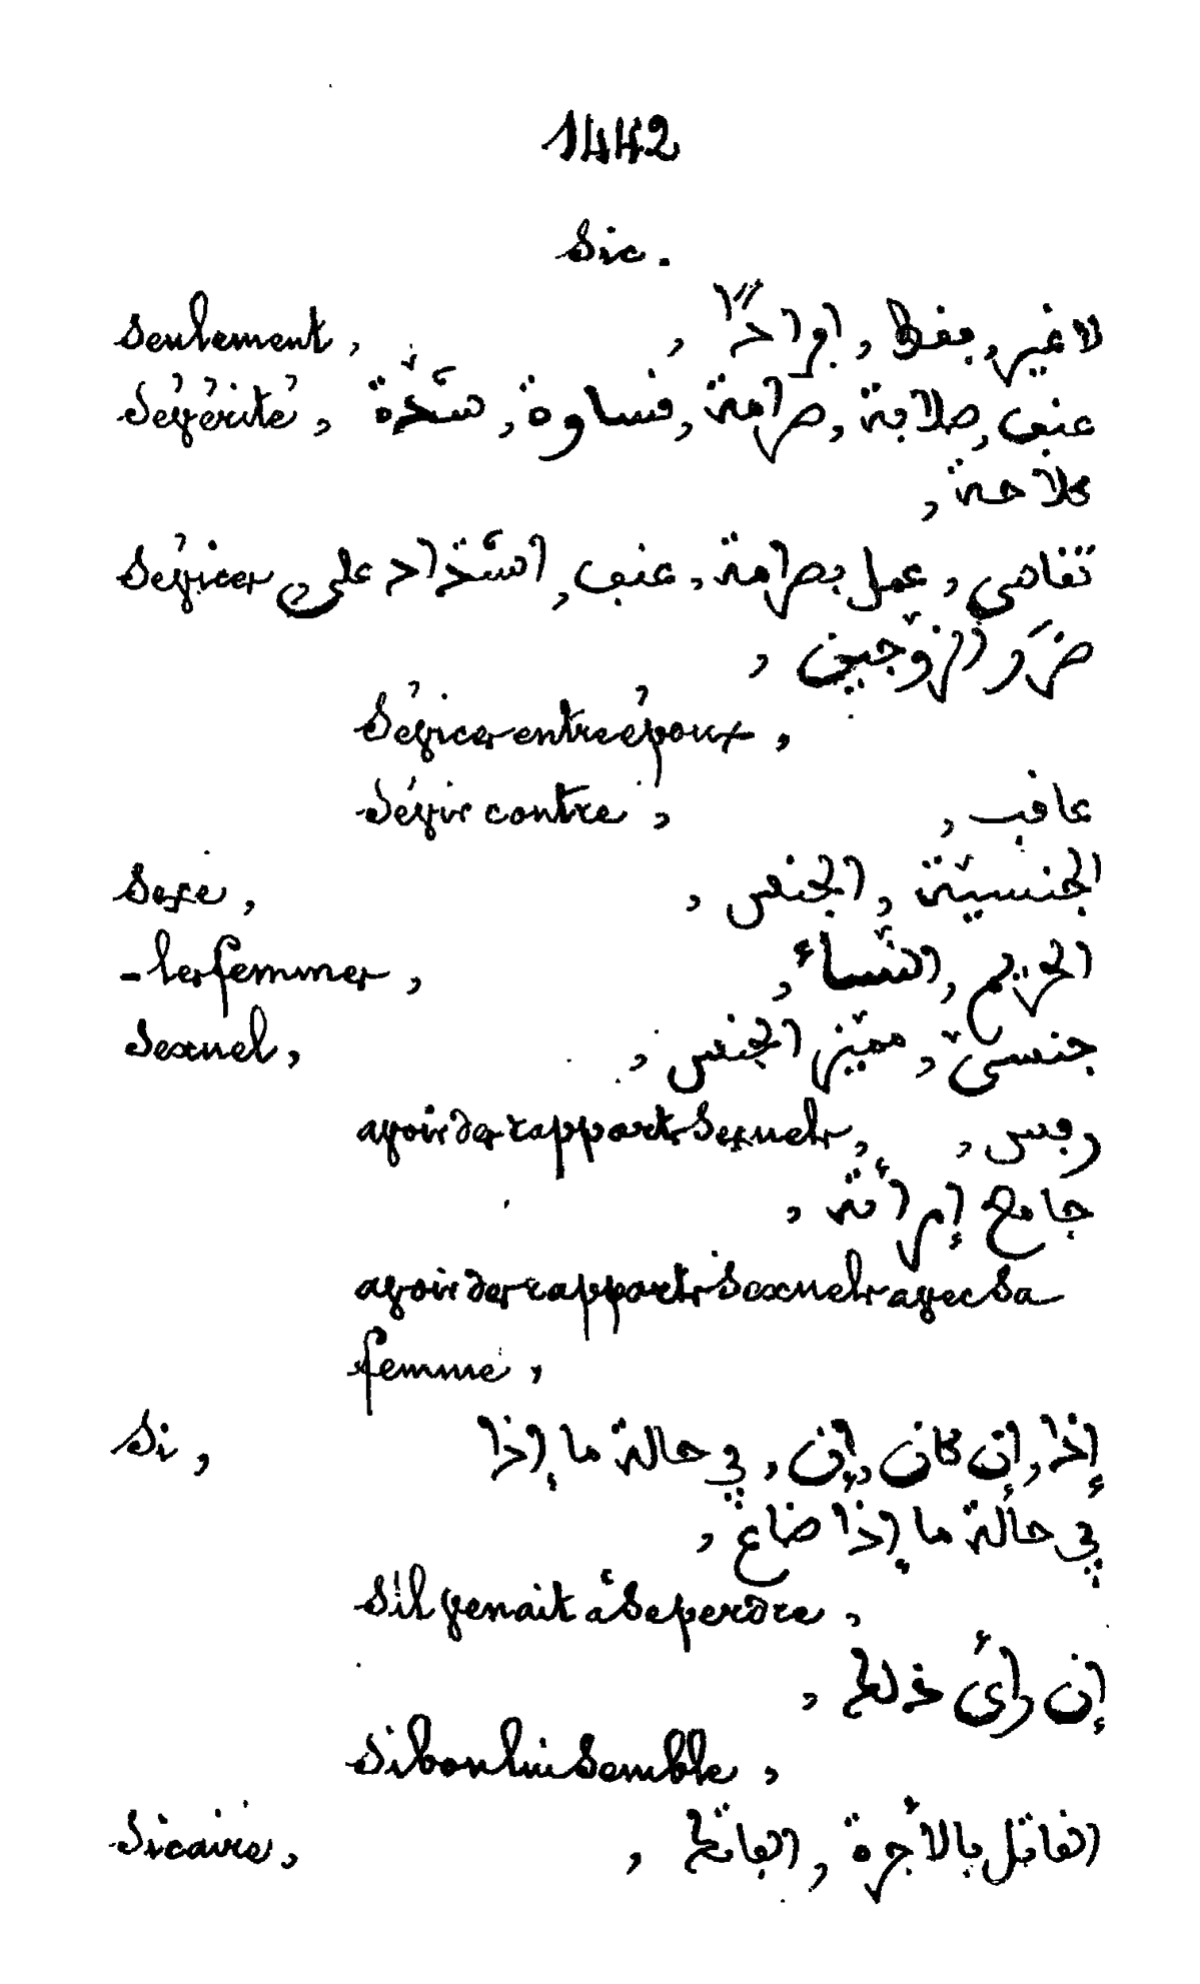 1442
Sic.
Seulement, لا غير, بفط, إبرادًا,
Sévérité, عنب, صلابة, صرامة, فساوة, شدّة
كلاحة,
Sévices, تفاضي, عمل بصرامة, عنب, اشتداد على,
ضرَر الزّوجين,
Sévices entre époux,
Sévir contre, عافب,
Sexe, الجنسيّة, الجنس,
- les femmes, الحريم, النّساء,
Sexuel, جنسيّ, مميّز الجنس,
avoir des rapports sexuels, رفس,
جامع إمرأته,
avoir des rapports sexuels avec sa
femme,
Si, إذا, إن كان, إن, في حالة ما إذا
في حالة ما إذا ضاع,
S'il venait à se perdre,
إن رأى ذلك,
Si bon lui semble,
Sicaire, الفاتل بالأجرة, الباتك,